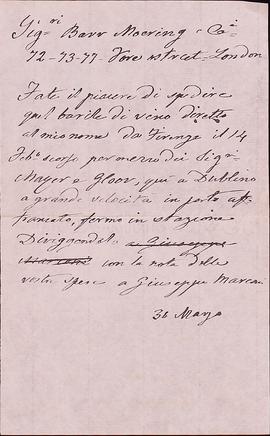 Sig.ri Barr Moering & Co.
72-73-77- Fore street - London
Fate il piacere di spedire
quel barile di vino diretto
al mio nome da Firenze il 14
Feb.o scorso per mezzo dei Sigri
Mayer e Gloor, quì a Dublino
a grande velocità in porto af-
francato, fermo in stazione
Dirigendolo a Giuseppe
Marconi con la nota delle
vostre spese a Giuseppe Marconi
31 Marzo